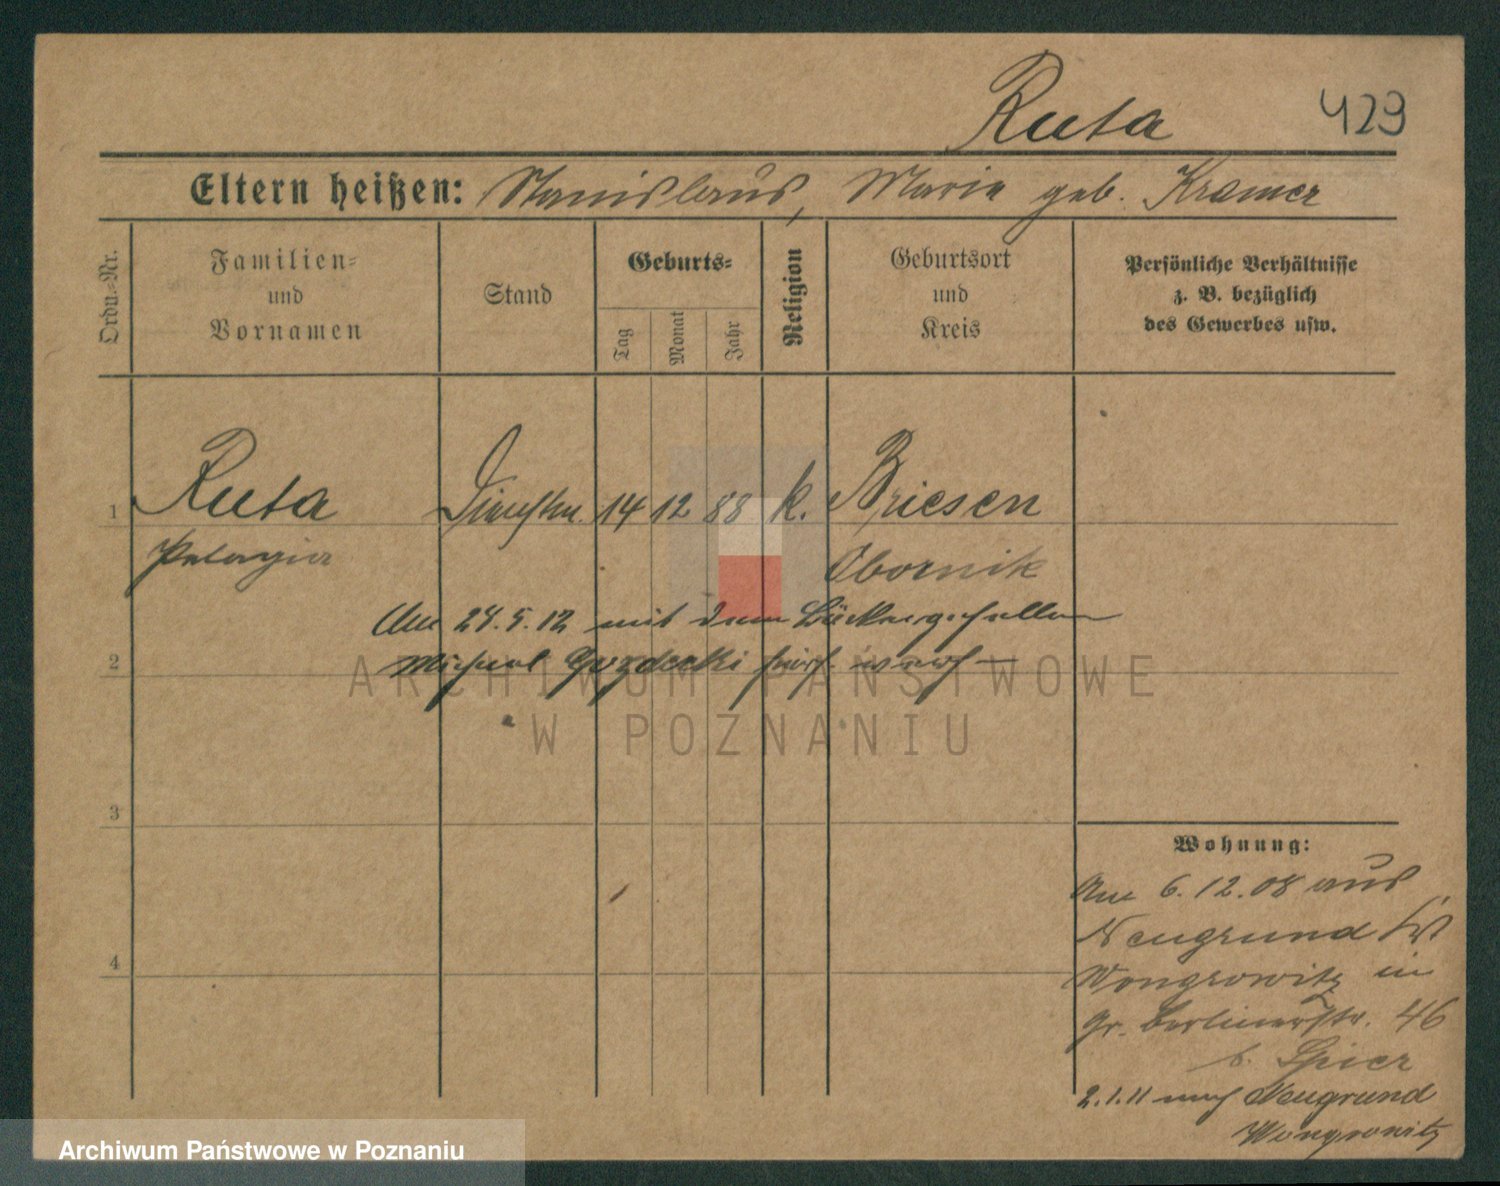 Ruta 429
Eltern heißen: Stanislaus, Marie geb. Kramer
Ordn.-Nr.
Familien-
und
Vornamen
Stand
Geburts-
Tag
Monat
Jahr
Religion
Geburtsort
und
Kreis
Persönliche Verhältnisse
z. B. bezüglich
des Gewerbes usw.
1 Ruta Dienstm. 14 12 88 k. Briesen
Pelagia Obornik
Am 24.5.12 mit dem Bäckergesellen
2 Michael Gozdecki
ARCHIWUM PAŃSTWOWE
W POZNANIU
3
Wohnung:
Am 6.12.08 aus
Neugrund
4
Wongrowitz in
gr. Berlinerstr. 46
b. Spier
2.1.11 nach Neugrund
Wongrowitz
Archiwum Państwowe w Poznaniu